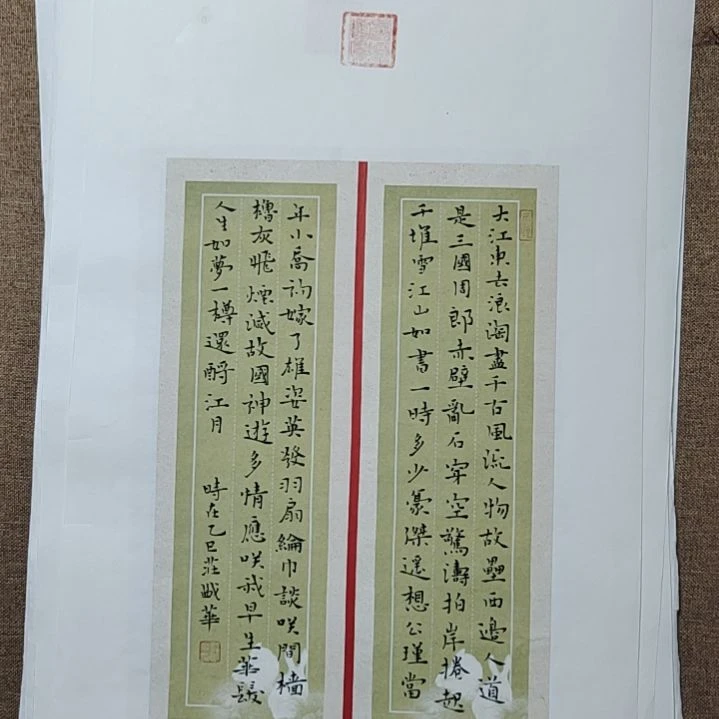 大江東去浪淘盡千古風流人物故壘西邊人道
是三國周郎赤壁亂石穿空驚濤拍岸捲起
千堆雪江山如畫一時多少豪傑遙想公瑾當
年小喬初嫁了雄姿英發羽扇綸巾談咲間檣
櫓灰飛煙滅故國神遊多情應咲我早生華髮
人生如夢一樽還酹江月 時在乙巳莊華